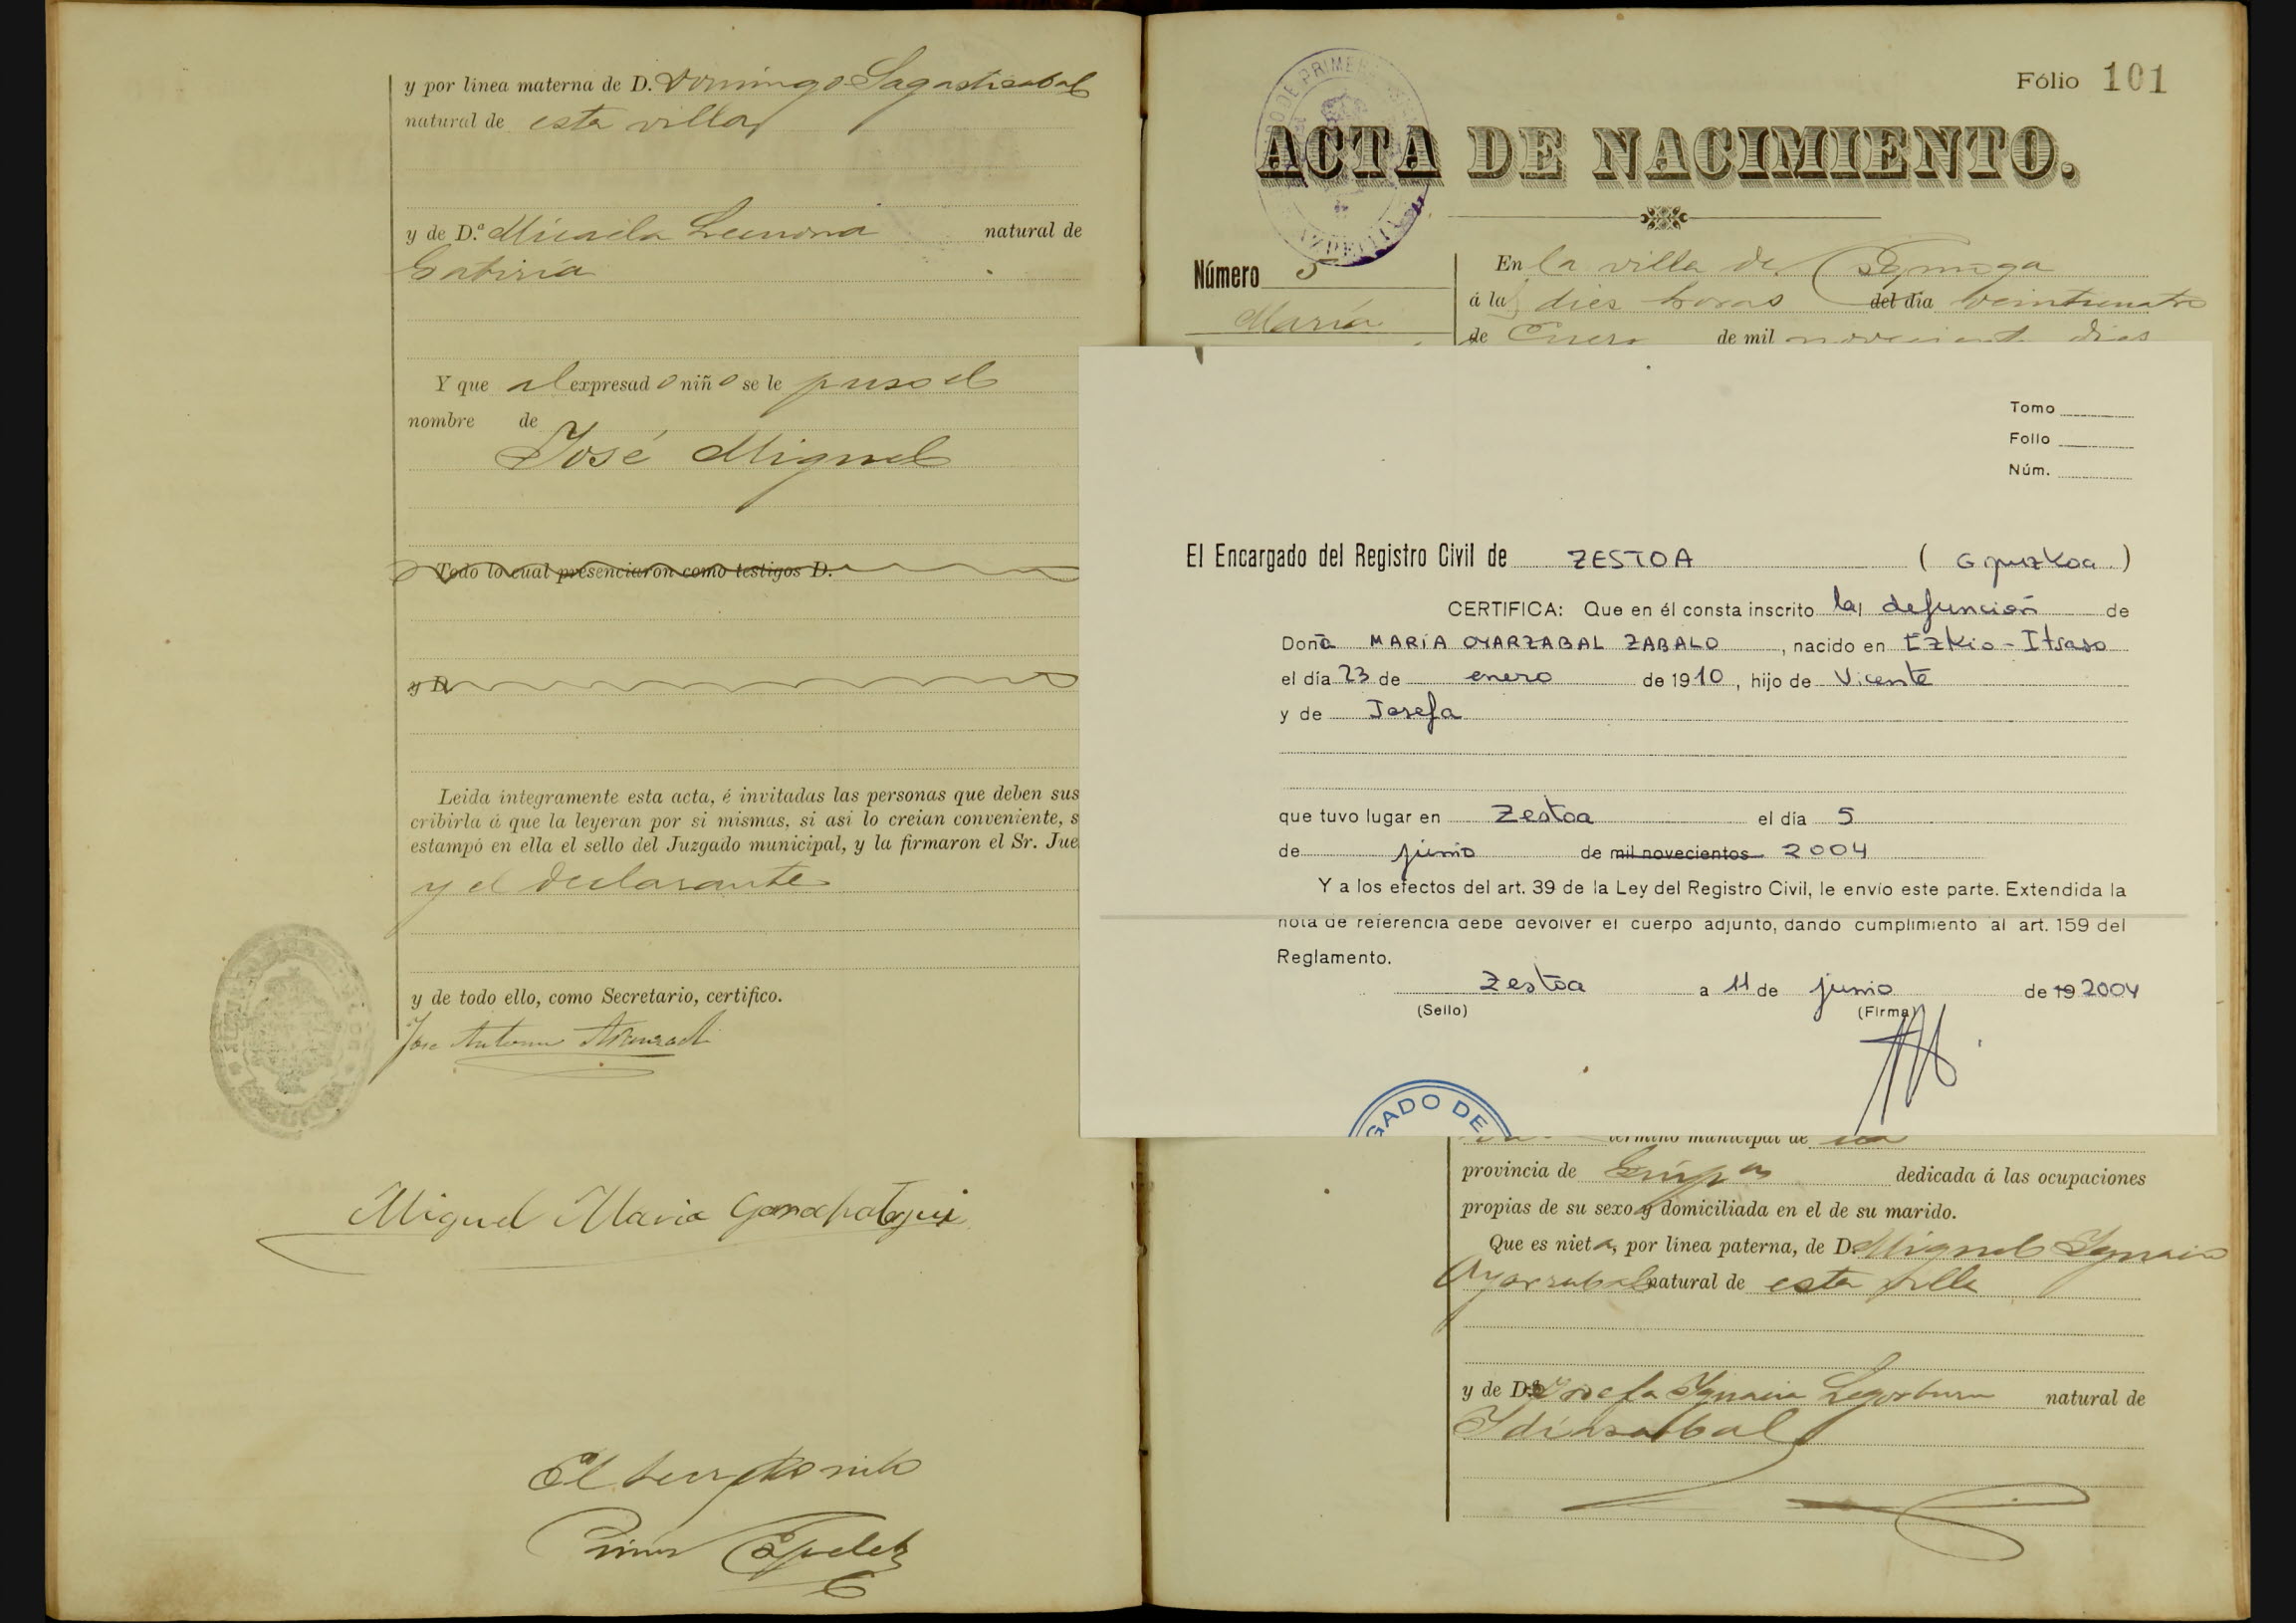 y por línea materna de D. Domingo Sagastizabal
natural de esta villa
y de D.ª Micaela Lecuona natural de
Gabiria
Y que al expresado niño se le puso el
nombre de
José Miguel
Todo lo cual presenciaron como testigos D.
y D.
Leida íntegramente esta acta, é invitadas las personas que deben sus
cribirla á que la leyeran por si mismas, si asi lo creian conveniente, s
estampó en ella el sello del Juzgado municipal, y la firmaron el Sr. Jue
y el declarante
y de todo ello, como Secretario, certifico.
Jose Antonio
Miguel Maria
El
Fólio 101
ACTA DE NACIMIENTO.
Número 5
María
En la villa de
á las diez horas del dia veinticuatro
de Enero de mil novecientos diez
Tomo
Folio
Núm.
El Encargado del Registro Civil de ZESTOA ( Gipuzkoa )
CERTIFICA: Que en él consta inscrito la defunción de
Doña MARÍA OYARZABAL ZABALO, nacido en Ezkio-Itsaso
el día 23 de enero de 1910, hijo de Vicente
y de Josefa
que tuvo lugar en Zestoa el día 5
de junio de mil novecientos 2004
Y a los efectos del art. 39 de la Ley del Registro Civil, le envío este parte. Extendida la
nota de referencia debe devolver el cuerpo adjunto, dando cumplimiento al art. 159 del
Reglamento.
Zestoa a 11 de junio de 19 2004
(Sello) (Firma)
GADO DE
término municipal de id
provincia de Guipª dedicada á las ocupaciones
propias de su sexo y domiciliada en el de su marido.
Que es nieta, por línea paterna, de D. Miguel Ignacio
Oyarzabal natural de esta villa
y de D.ª Josefa Ignacia Legorburu natural de
Idiazabal